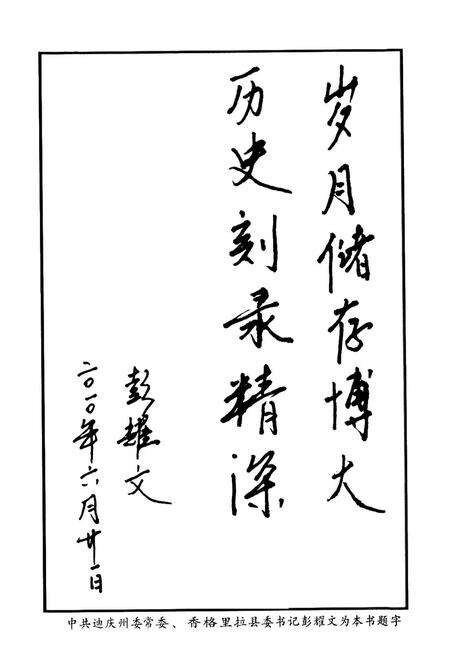 岁月储存博大
历史刻录精深
彭耀文
二〇一〇年六月廿一日
中共迪庆州委常委、香格里拉县委书记彭耀文为本书题字